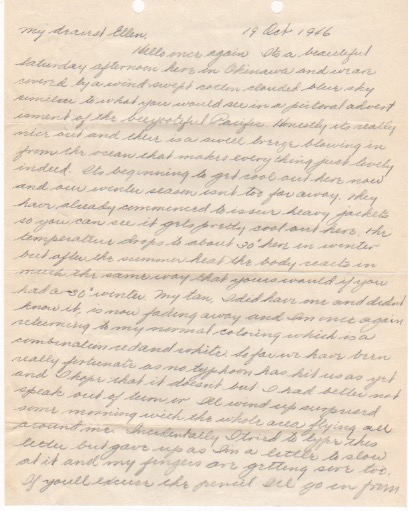 19 Oct 1946
My dearest Ellen,
Hello once again. Its a beautiful
Saturday afternoon here in Okinawa and we are
covered by a wind swept cotton clouded blue sky
similar to what you would see in a pictoral advert
isment of the Pacific. Honestly its really
nice out and there is a swell breeze blowing in
from the ocean that makes everything just lovely
indeed. Its beginning to get cool out here now
and our winter season isnt too far away. They
have already commenced to issue heavy jackets
so you can see it gets pretty cool out here. The
temperature drops to about 30° here in winter
but after the summer heat the body reacts in
much the same way that yours would if you
had a -30° winter. My tan, I did have one and didnt
know it, is now fading away and Im once again
returning to my normal coloring which is a
combination red and white. So far we have been
really fortunate as no typhoon has hit us as yet
and I hope that it doesnt but I had better not
speak out of turn or Ill wind up surprised
some morning with the whole area flying all
around me. Incidentally I tried to type this
letter but gave up as Im a little to slow
at it and my fingers are getting sore too.
If youll excuse the pencil Ill go on from